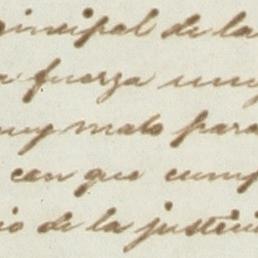 rincipal de la
a fuerza muy
muy malo para
con que cump
io de la justici